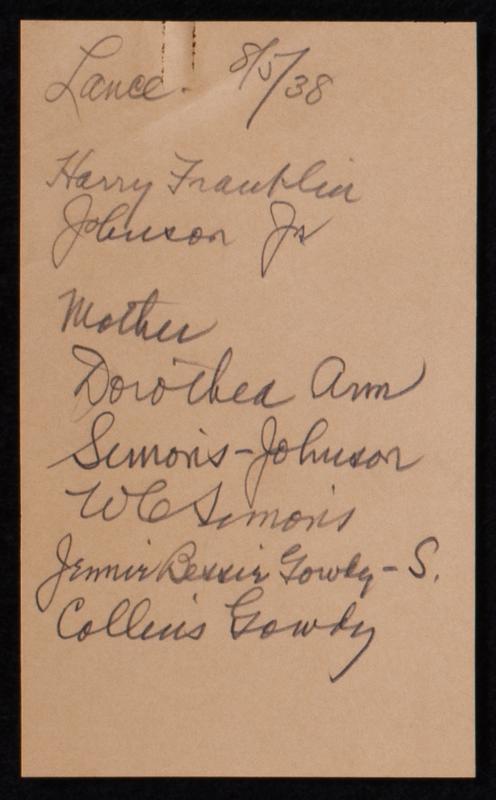 Lance. 8/5/38
Harry Franklin
Johnson Jr
Mother
Dorothea Ann
Simons-Johnson
W C Simons
Jennie Bessie Gowdy - S.
Collins Gowdy